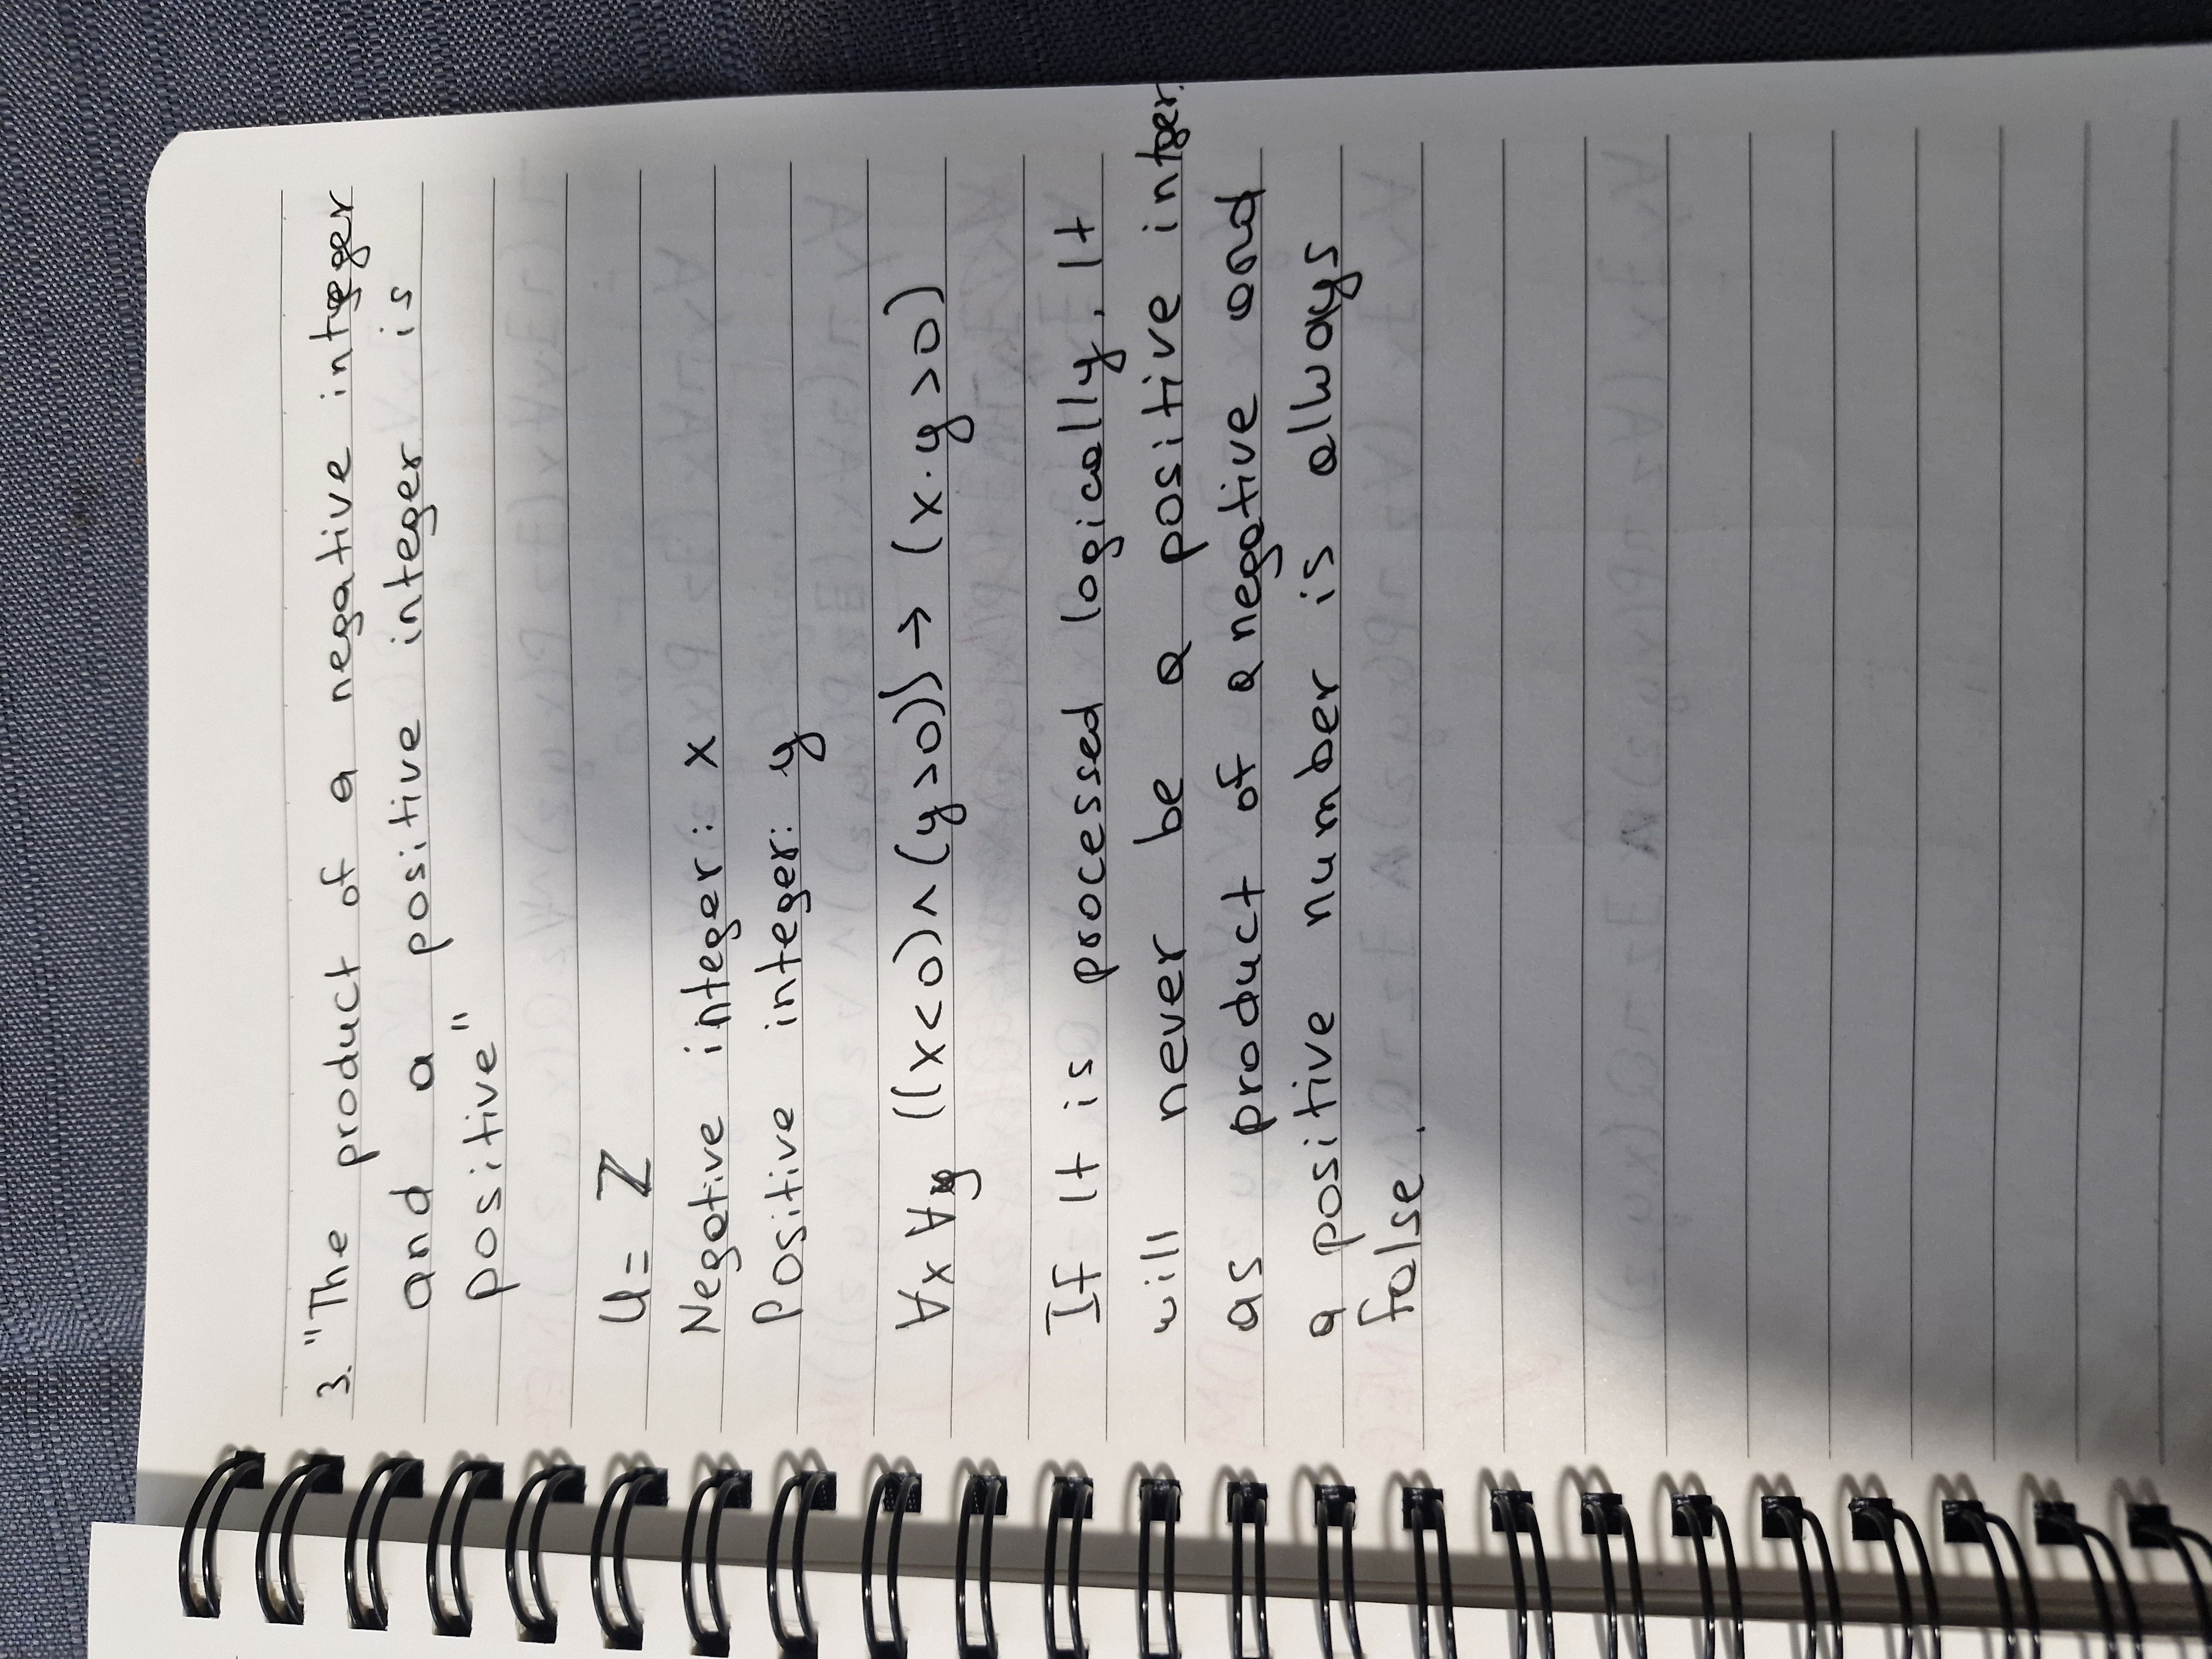 3. "The product of a negative integer
and a positive integer is
positive"
U= ℤ
Negative integer: x
Positive integer: y
∀x ∀y ((x<0)∧(y>0)) → (x·y>0)
If It is processed logically, It
will never be a positive intger.
as product of a negative and
a positive number is always
false.